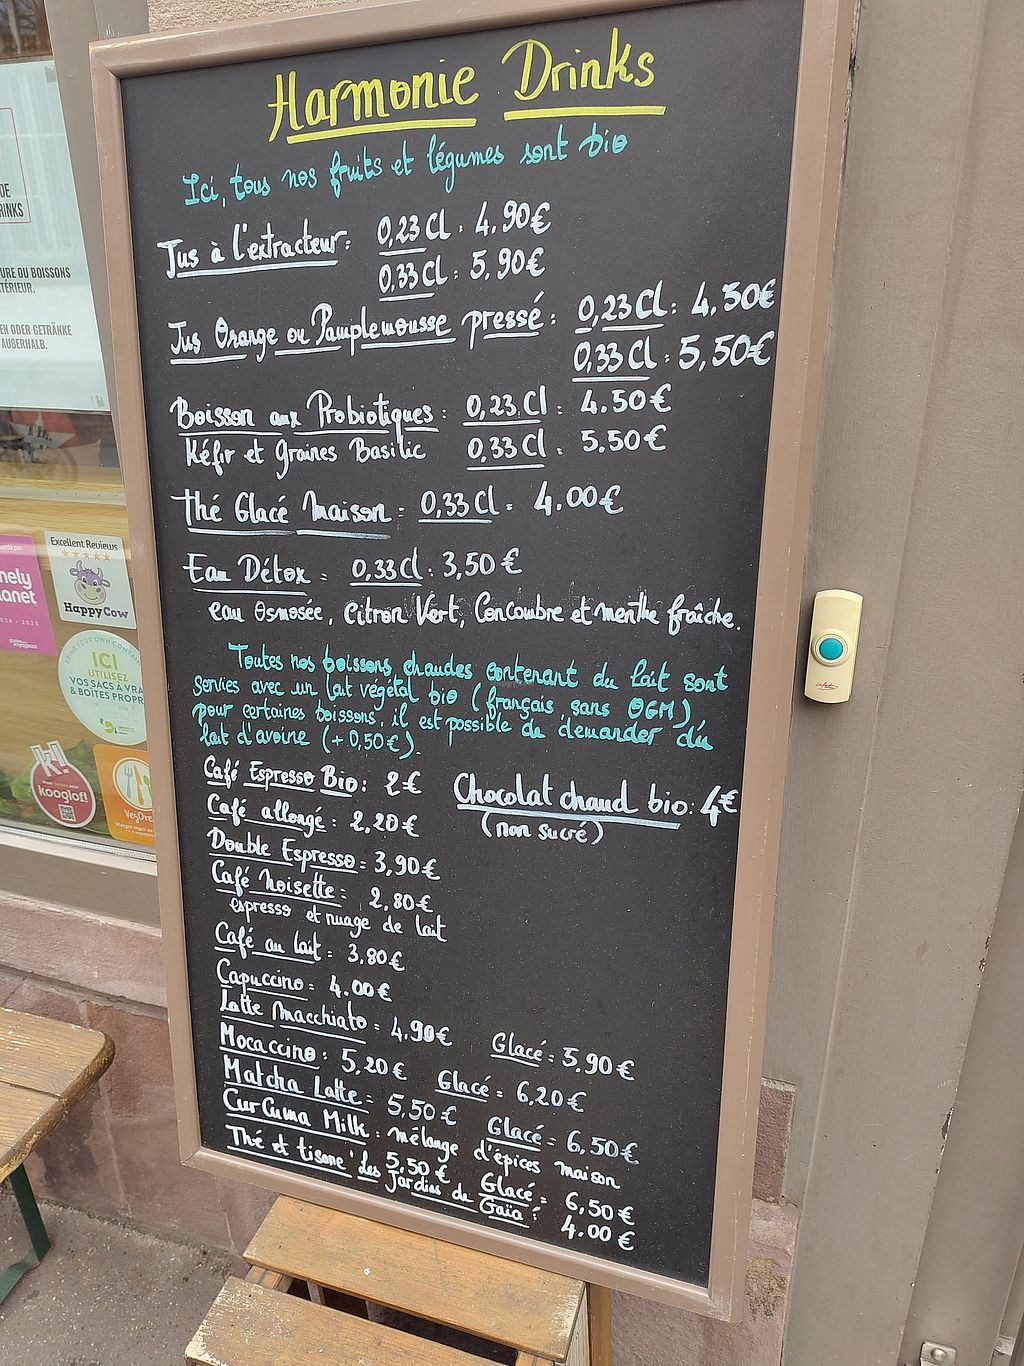 Harmonie Drinks
Ici, tous nos fruits et légumes sont bio
Jus à l'extracteur: 0,23Cl: 4.90€
0,33Cl: 5,90€
Jus Orange ou Pamplemousse pressé: 0,23Cl: 4,50€
0,33Cl: 5,50€
Boisson aux Probiotiques: 0,23Cl: 4.50€
Kéfir et graines Basilic 0,33Cl: 5.50€
thé Glacé Maison: 0,33Cl: 4.00€
Eau Détox: 0,33Cl: 3,50€
eau Osmosée, Citron Vert, Concombre et menthe fraîche.
Toutes nos boissons chaudes contenant du lait sont
servies avec un lait végétal bio (français sans OGM)
pour certaines boissons, il est possible de demander du
lait d'avoine (+0,50€).
Café Espresso Bio: 2€
Chocolat chaud bio: 4€
(non sucré)
Café allongé: 2,20€
Double Espresso: 3,90€
Café Noisette: 2,80€
espresso et nuage de lait
Café au lait: 3,80€
Capuccino: 4.00€
Latte Macchiato: 4,90€ Glacé: 5,90€
Mocaccino: 5,20€ Glacé: 6,20€
Matcha Latte: 5,50€ Glacé: 6,50€
Curcuma Milk: mélange d'épices maison
5,50€ Glacé: 6,50€
Thé et tisane "les Jardins de Gaïa": 4.00€
DE
RINKS
URE OU BOISSONS
TÉRIEUR.
EN ODER GETRÄNKE
AUßERHALB.
nely
lanet
2024 - 2025
Excellent Reviews
HappyCow
BRING YOUR OWN CONTAINER
ICI
UTILISEZ
VOS SACS À VRA
& BOÎTES PROPR
k!
kooglof!
VegOre